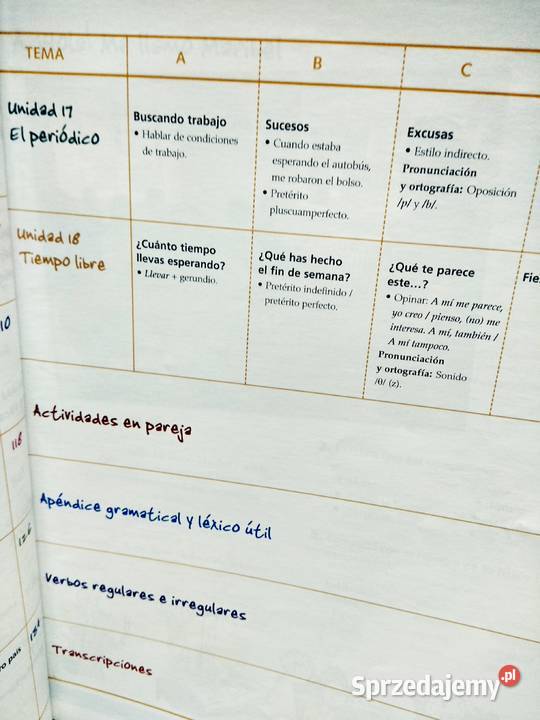 TEMA
A
B
C
Unidad 17
El periódico
Buscando trabajo
• Hablar de condiciones
de trabajo.
Sucesos
• Cuando estaba
esperando el autobús,
me robaron el bolso.
• Pretérito
pluscuamperfecto.
Excusas
• Estilo indirecto.
Pronunciación
y ortografía: Oposición
/p/ y /b/.
Unidad 18
Tiempo libre
¿Cuánto tiempo
llevas esperando?
• Llevar + gerundio.
¿Qué has hecho
el fin de semana?
• Pretérito indefinido /
pretérito perfecto.
¿Qué te parece
este...?
• Opinar: A mí me parece,
yo creo / pienso, (no) me
interesa. A mí, también /
A mí tampoco.
Pronunciación
y ortografía: Sonido
/θ/ (z).
Actividades en pareja
118
Apéndice gramatical y léxico útil
126
Verbos regulares e irregulares
Transcripciones
país
Sprzedajemy.pl